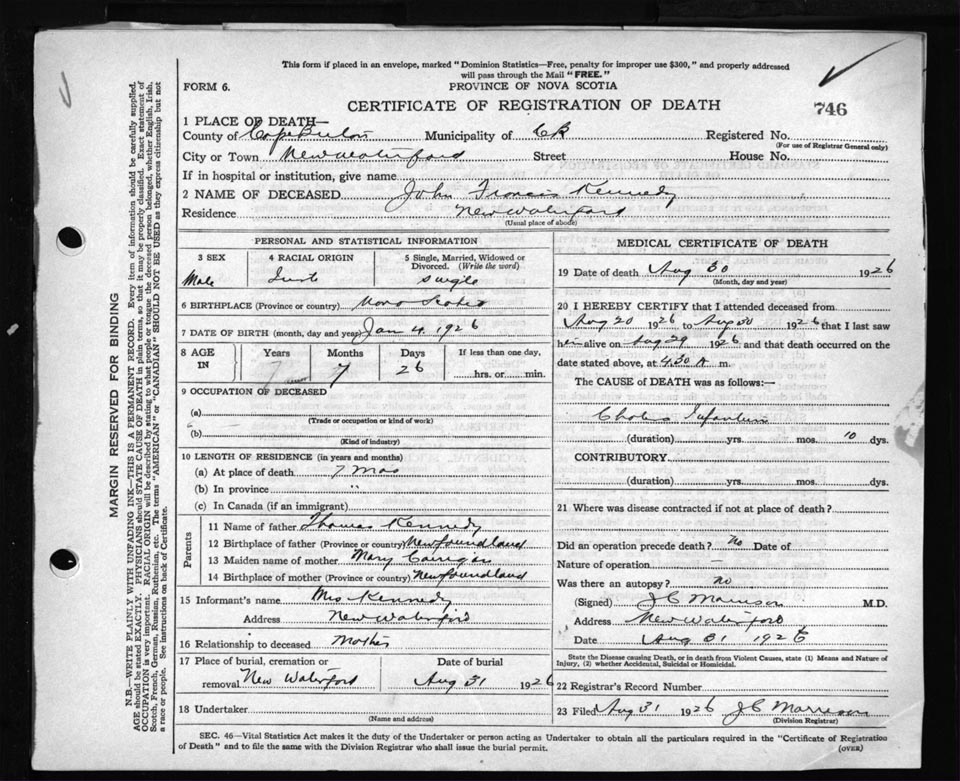 This form if placed in an envelope, marked "Dominion Statistics—Free, penalty for improper use $300," and properly addressed
will pass through the Mail "FREE."
FORM 6.
PROVINCE OF NOVA SCOTIA
CERTIFICATE OF REGISTRATION OF DEATH
746
1 PLACE OF DEATH—
County of Cape Breton Municipality of CB Registered No.
(For use of Registrar General only)
City or Town New Waterford Street House No.
If in hospital or institution, give name
2 NAME OF DECEASED John Francis Kennedy
Residence New Waterford
(Usual place of abode)
PERSONAL AND STATISTICAL INFORMATION
3 SEX 4 RACIAL ORIGIN 5 Single, Married, Widowed or
Divorced. (Write the word)
Male single
6 BIRTHPLACE (Province or country) Nova Scotia
7 DATE OF BIRTH (month, day and year) Jan 4. 1926
8 AGE IN Years Months Days If less than one day,
7 26 hrs. or min.
9 OCCUPATION OF DECEASED
(a)
(Trade or occupation or kind of work)
(b)
(Kind of industry)
10 LENGTH OF RESIDENCE (in years and months)
(a) At place of death 7 Mos
(b) In province "
(c) In Canada (if an immigrant)
Parents
11 Name of father Thomas Kennedy
12 Birthplace of father (Province or country) Newfoundland
13 Maiden name of mother Mary
14 Birthplace of mother (Province or country) Newfoundland
15 Informant's name Mrs Kennedy
Address New Waterford
16 Relationship to deceased Mother
17 Place of burial, cremation or Date of burial
removal New Waterford Aug 31 1926
18 Undertaker
(Name and address)
MEDICAL CERTIFICATE OF DEATH
19 Date of death Aug 30 1926
(Month, day and year)
20 I HEREBY CERTIFY that I attended deceased from
Aug 20 1926 to Aug 30 1926 that I last saw
him alive on Aug 29 1926 and that death occurred on the
date stated above, at 4.30 A m.
The CAUSE of DEATH was as follows:—
Cholera Infantum
(duration) yrs. mos. 10 dys.
CONTRIBUTORY
(duration) yrs. mos. dys.
21 Where was disease contracted if not at place of death?
Did an operation precede death? No Date of
Nature of operation —
Was there an autopsy? no
(Signed) J C Morrison M.D.
Address New Waterford
Date Aug 31 1926
State the Disease causing Death, or in death from Violent Causes, state (1) Means and Nature of
Injury, (2) whether Accidental, Suicidal or Homicidal.
22 Registrar's Record Number
23 Filed Aug 31 1926 J C Morrison
(Division Registrar)
SEC. 46—Vital Statistics Act makes it the duty of the Undertaker or person acting as Undertaker to obtain all the particulars required in the "Certificate of Registration
of Death" and to file the same with the Division Registrar who shall issue the burial permit.
(OVER)
MARGIN RESERVED FOR BINDING
N.B.—WRITE PLAINLY WITH UNFADING INK—THIS IS A PERMANENT RECORD. Every item of information should be carefully supplied.
AGE should be stated EXACTLY. PHYSICIANS should STATE CAUSE OF DEATH in plain terms, so that it may be properly classified. Exact statement of
OCCUPATION is very important. RACIAL ORIGIN will be described by stating to what people or tongue the deceased person belonged, whether English, Irish,
Scotch, French, German, Russian, Ruthenian, etc. The terms "AMERICAN" or "CANADIAN" SHOULD NOT BE USED as they express citizenship but not
a race or people. See instructions on back of Certificate.